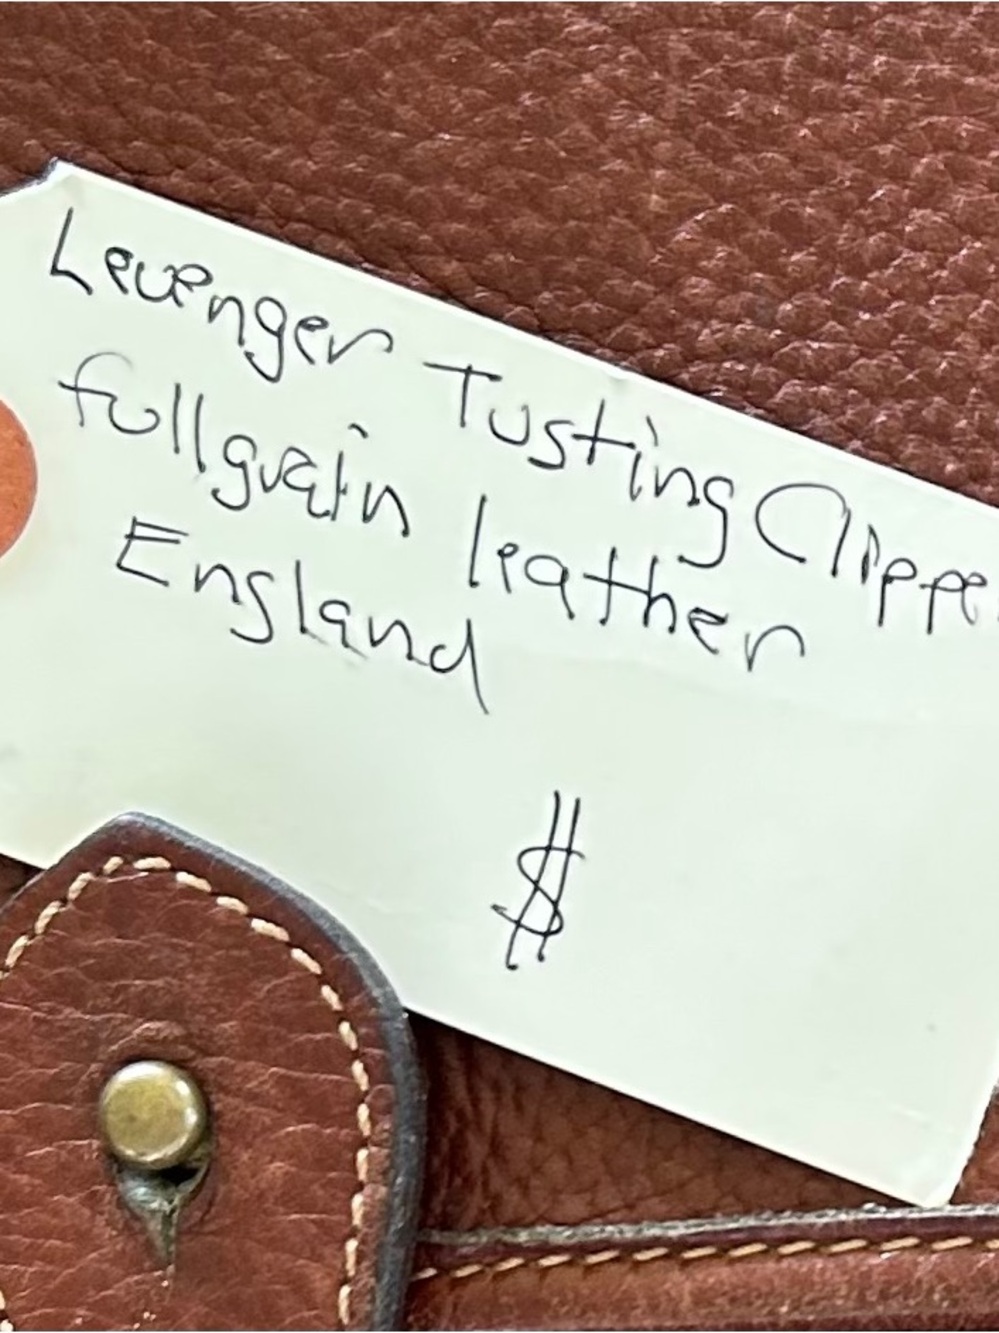 Levenger Tusting Clippe
fullgrain leather
England
$